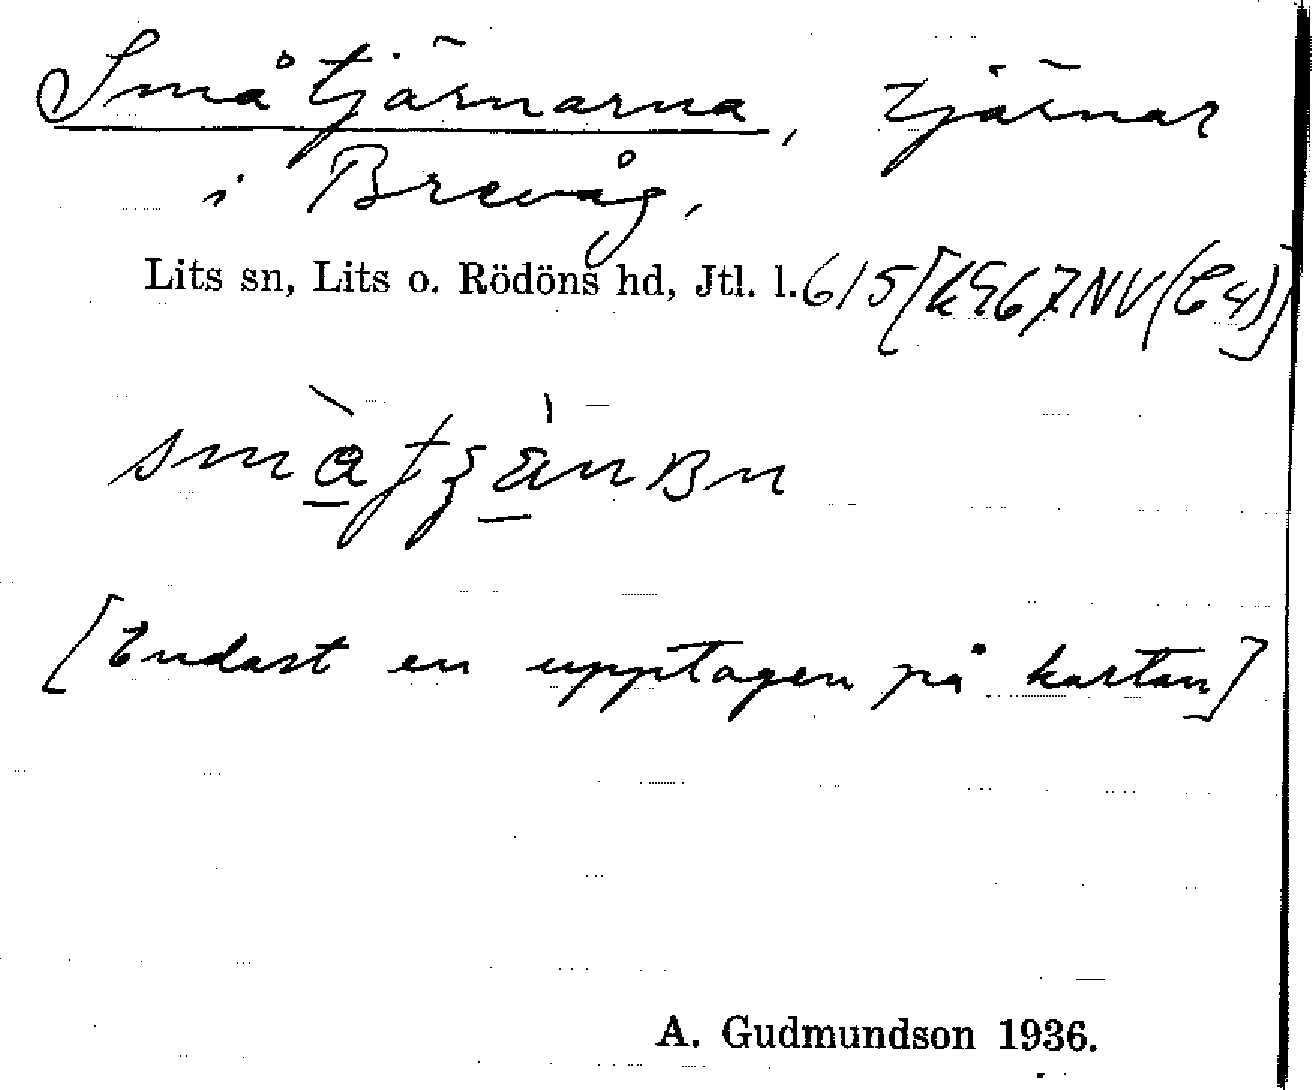 Småtjärnarna, tjärnar
i Brevåg,
Lits sn, Lits o. Rödöns hd, Jtl. l. 615 [kg67NV(C4)]
[Endast en upptagen på kartan]
A. Gudmundson 1936.